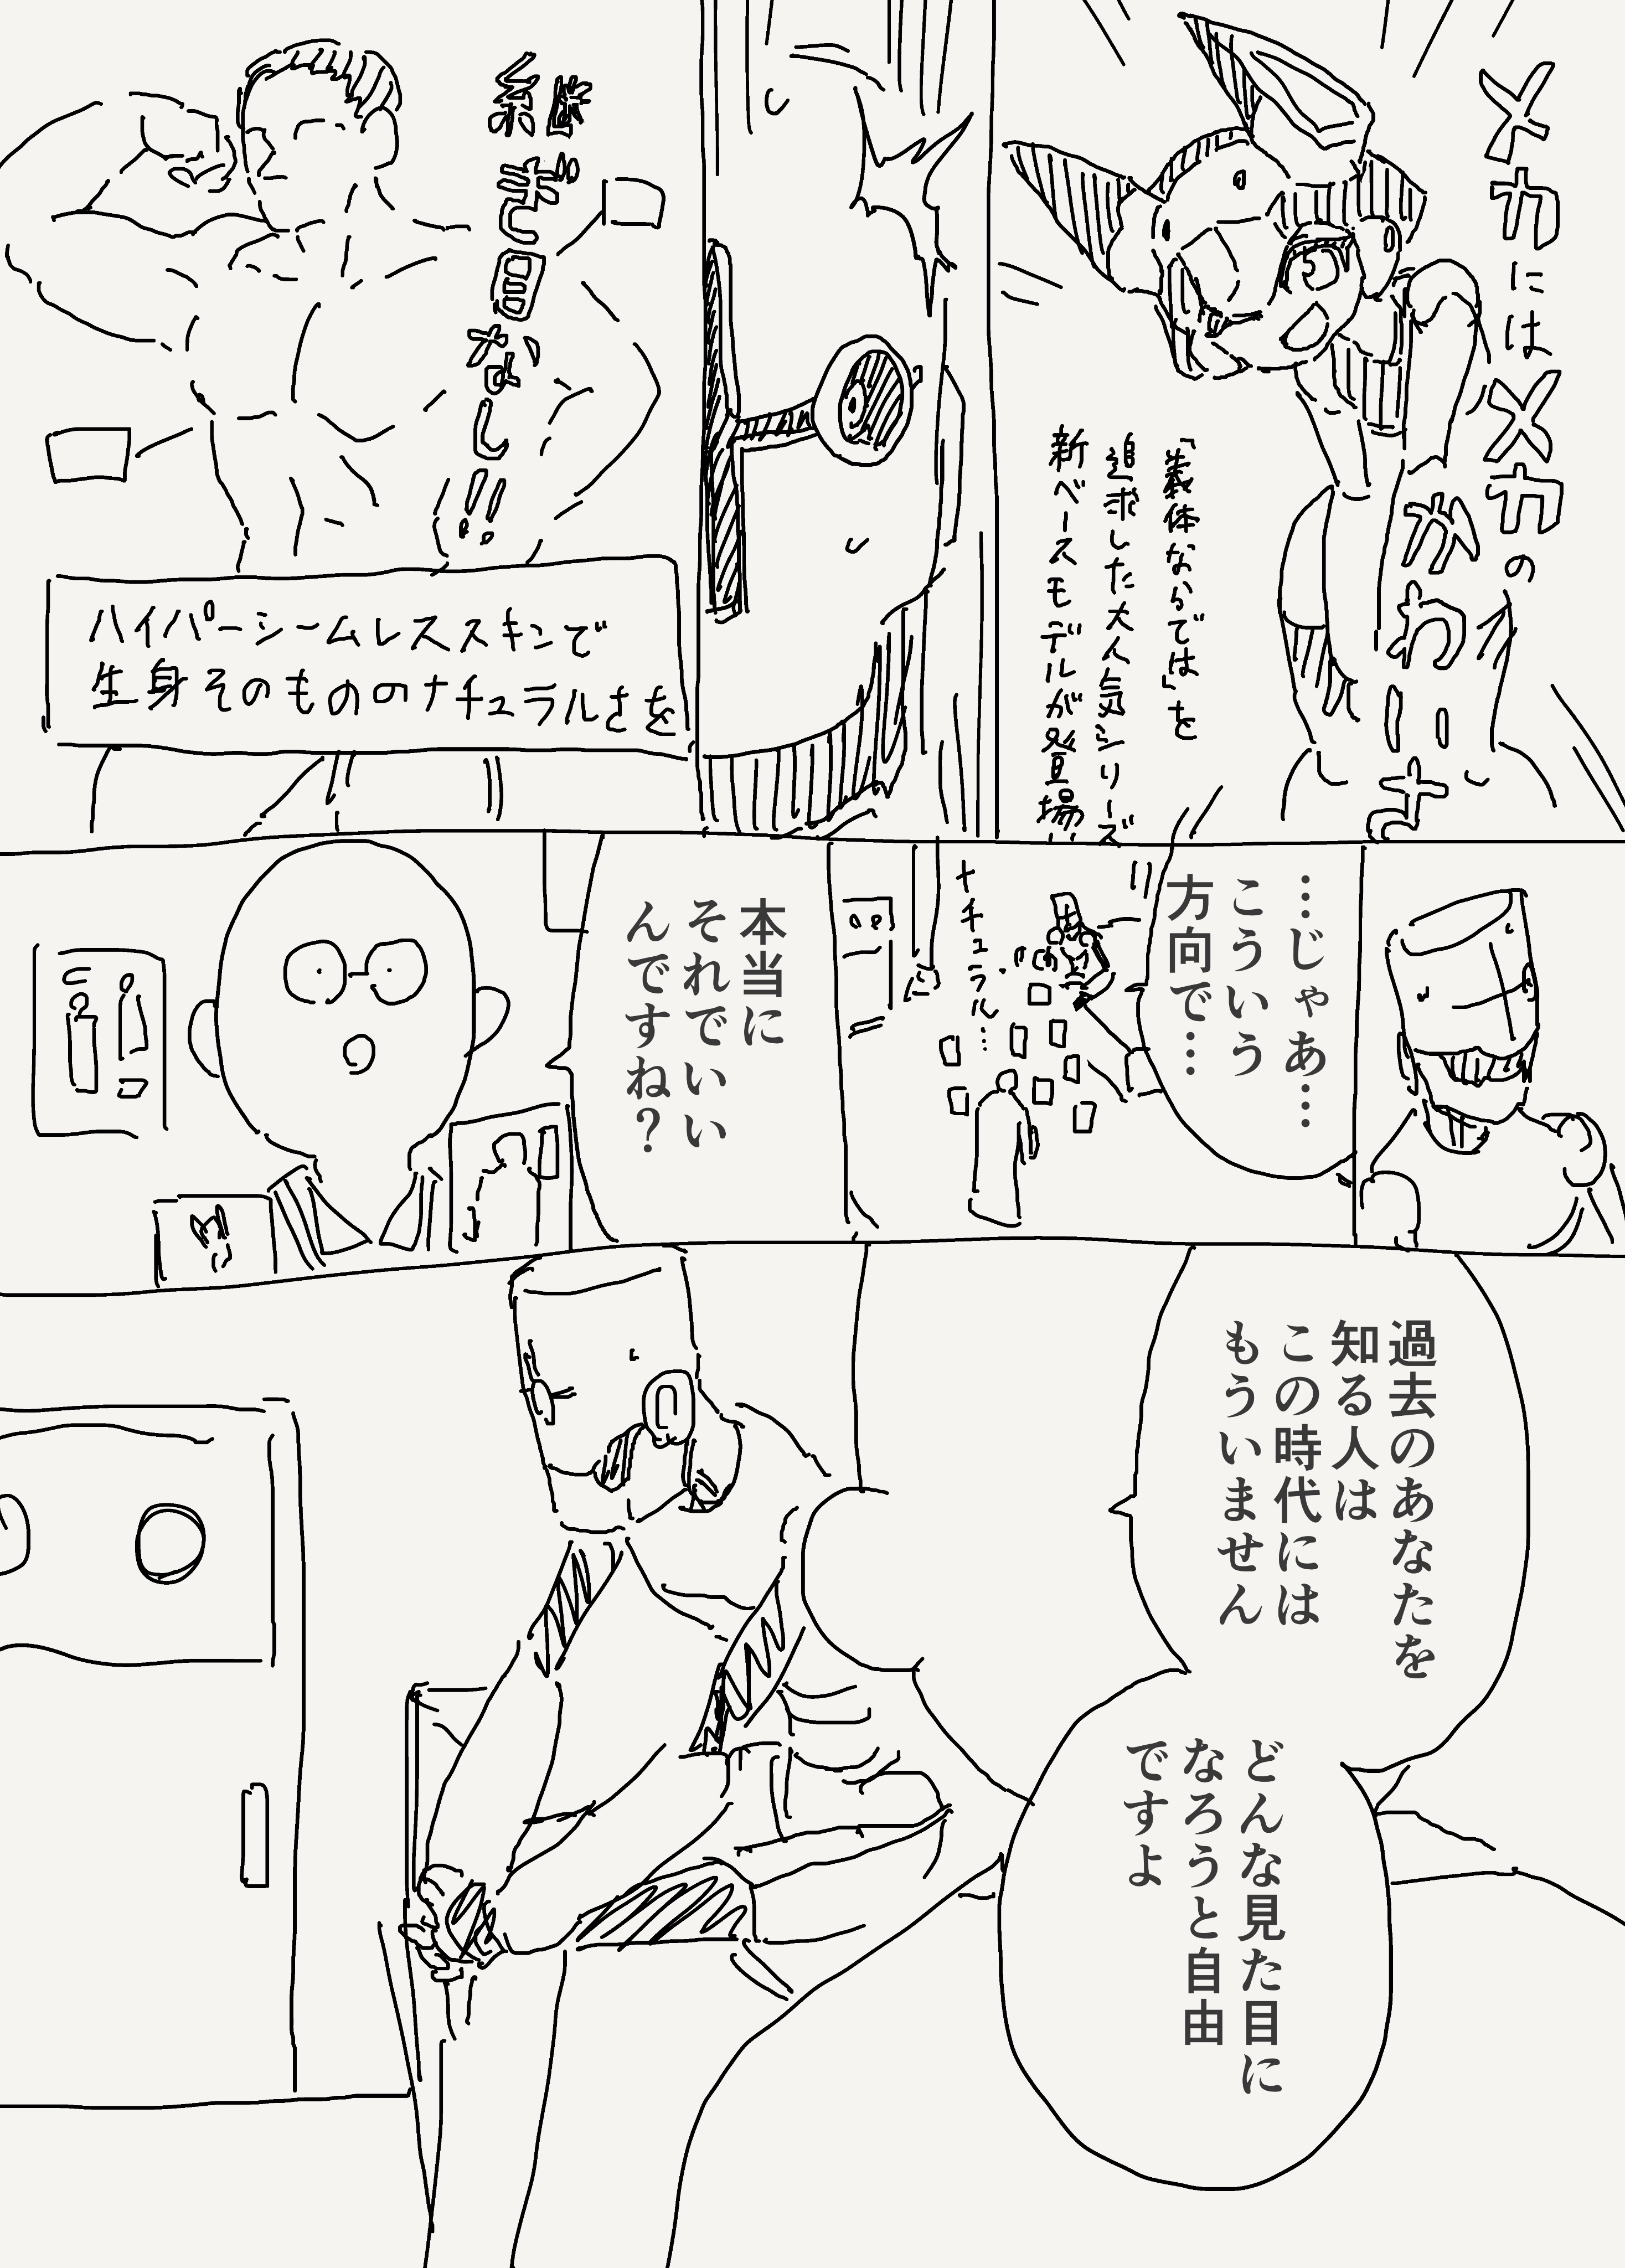 メカにはメカの
かわいさ
「義体ならでは」を
追求した大人気シリーズ
新ベースモデルが登場!!
継ぎ目なし!!
ハイパーシームレススキンで
生身そのもののナチュラルさを
…じゃあ…
こういう
方向で…
ナチュラル…
本当に
それでいい
んですね?
過去のあなたを
知る人は
この時代には
もういません
どんな見た目に
なろうと自由
ですよ